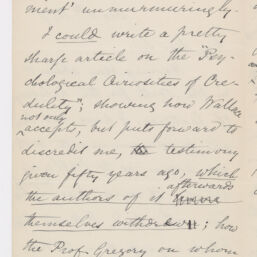 ment' unmurmuringly.
I could write a pretty
sharp article on the "Psy-
chological Curiosities of Cre-
dulity"; showing how Wallace
not only
accepts, but puts forward to
discredit me, the testimony
given fifty years ago, which
afterwards
the authors of it
themselves withdrew; how
the Prof. Gregory on whom